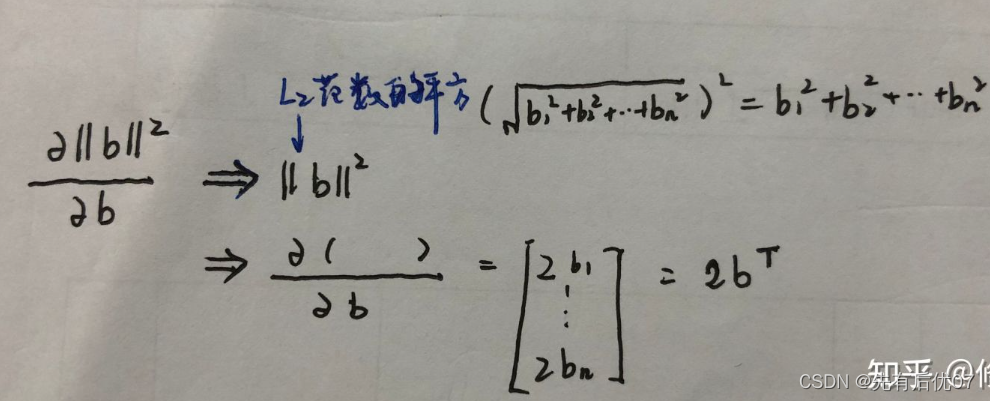 L₂范数的平方 (√(b₁²+b₂²+⋯+bₙ²))² = b₁²+b₂²+⋯+bₙ²
∂||b||²/∂b ⇒ ||b||²
⇒ ∂( )/∂b = [2b₁ ⋮ 2bₙ] = 2bᵀ
知乎 @
CSDN @先有后优07